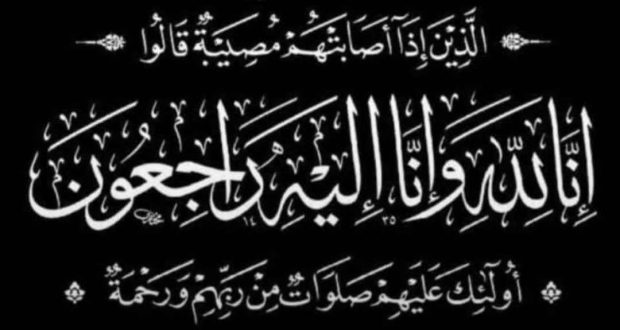 الَّذِيْنَ إِذَا أَصَابَتْهُمْ مُصِيْبَةٌ قَالُوا
إِنَّا لِلّٰهِ وَإِنَّا إِلَيْهِ رَاجِعُونَ
أُولَٰئِكَ عَلَيْهِمْ صَلَوَاتٌ مِنْ رَبِّهِمْ وَرَحْمَةٌ